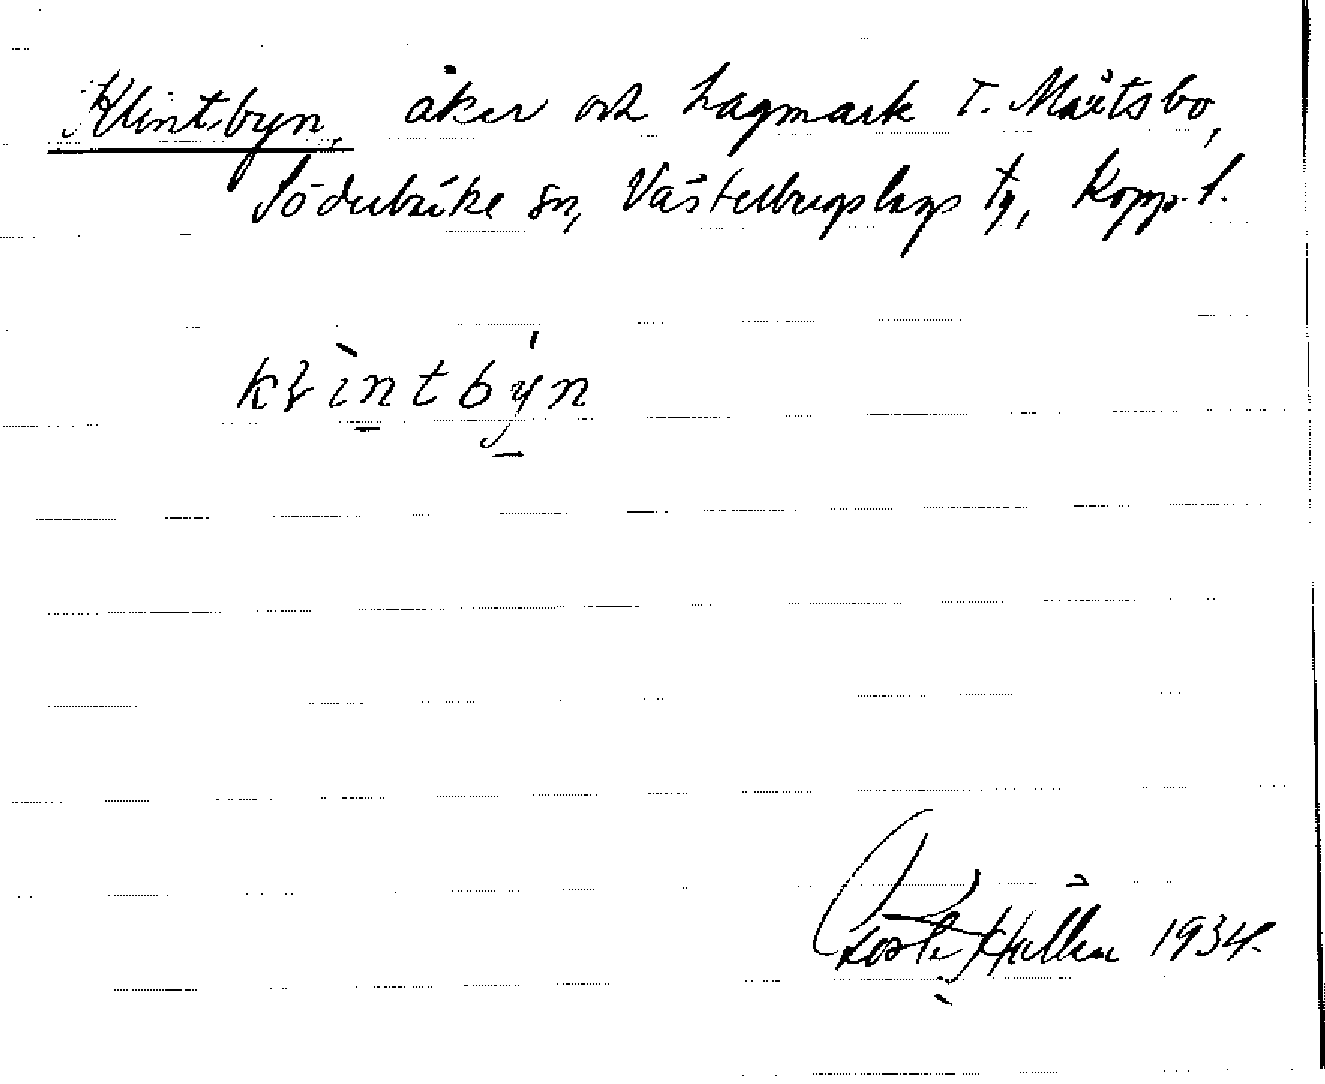 Klintbyn, åker och hagmark T. Mårtsbo,
Söderbärke sn, Västerbergslags tg, Kopp. l.
kłìntbýn
Gösta Hallén 1934.